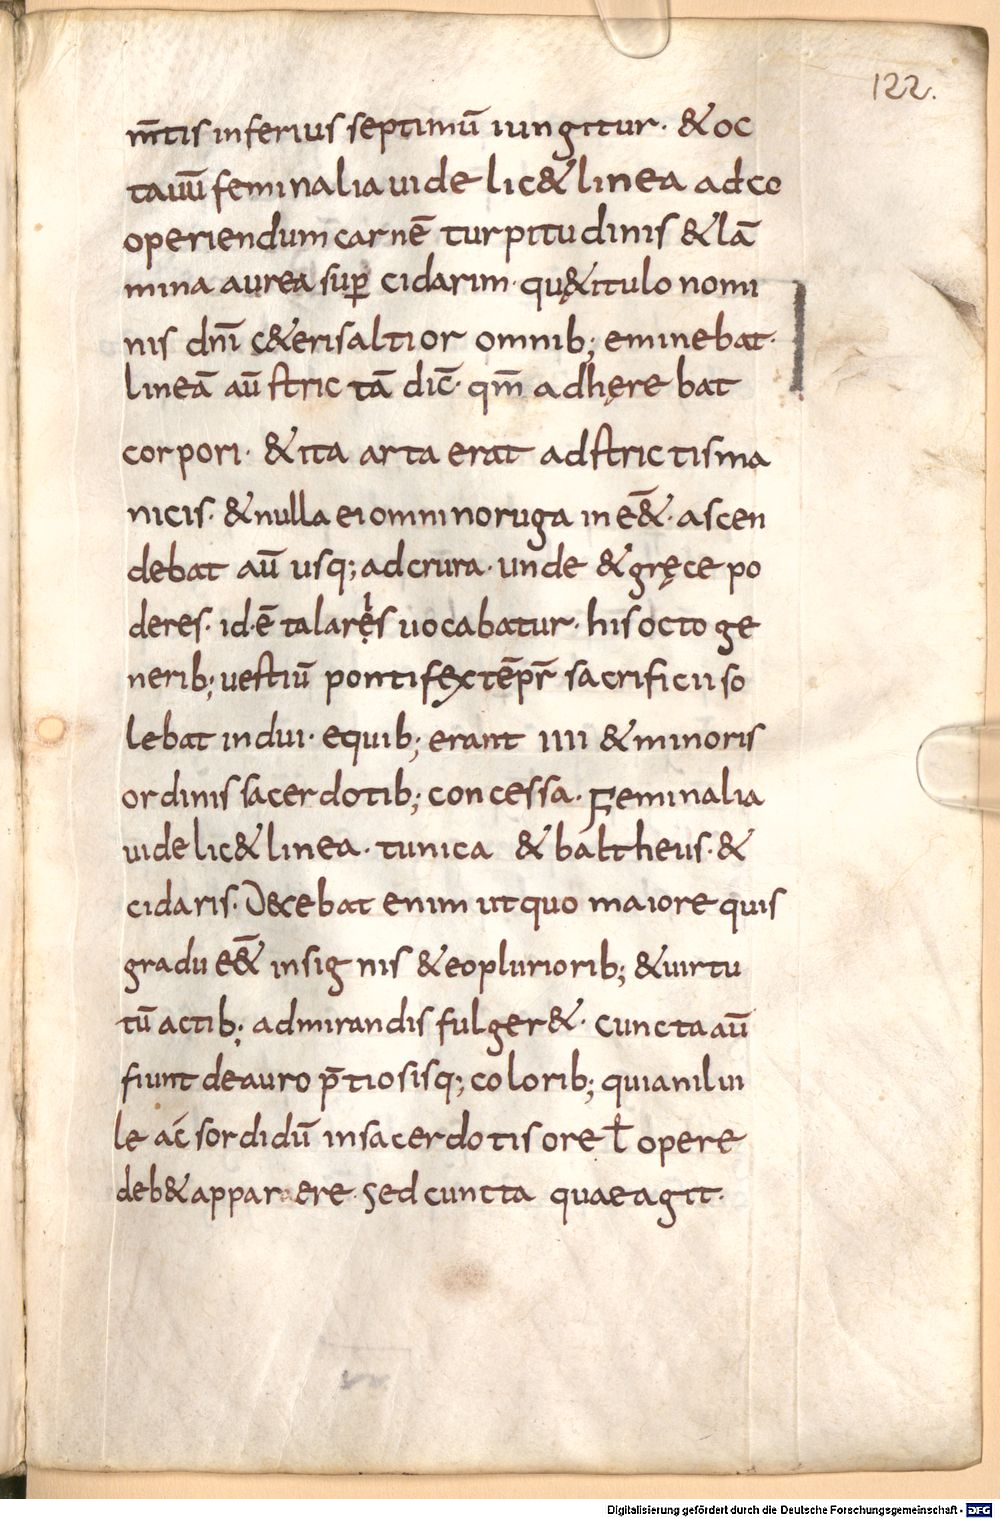 122.
m̄tis inferius septimū iungitur· & oc
tauū feminalia uidelic& linea adco
operiendum carnē turpitudinis & lā
mina aurea suꝑ cidarim· qu& titulo nomi
nis dnī c&eris altior omnib; eminebat·
lineā aū strictā dic̄· qm̄ adhęrebat
corpori· & ita arta erat adstrictis ma
nicis· & nulla ei omnino ruga inēē&· ascen
debat aū usq; ad crura· unde & gręce po
deres· id·ē talares uocabatur· his octo ge
nerib; uestiū pontifex tēpr̄ sacrificii so
lebat indui· e quib; erant IIII & minoris
ordinis sacerdotib; concessa· Feminalia
uidelic& linea· tunica & baltheus· &
cidaris· Decebat enim ut quo maiore quis
gradu e&̄ insignis & eo pluriorib; & uirtu
tū actib; admirandis fulger&· cuncta aū
fiunt de auro p̄tiosisq; colorib; quia nil ui
le ac sordidū in sacerdotis ore ł opere
deb& apparere· sed cuncta quae agit·
Digitalisierung gefördert durch die Deutsche Forschungsgemeinschaft - DFG